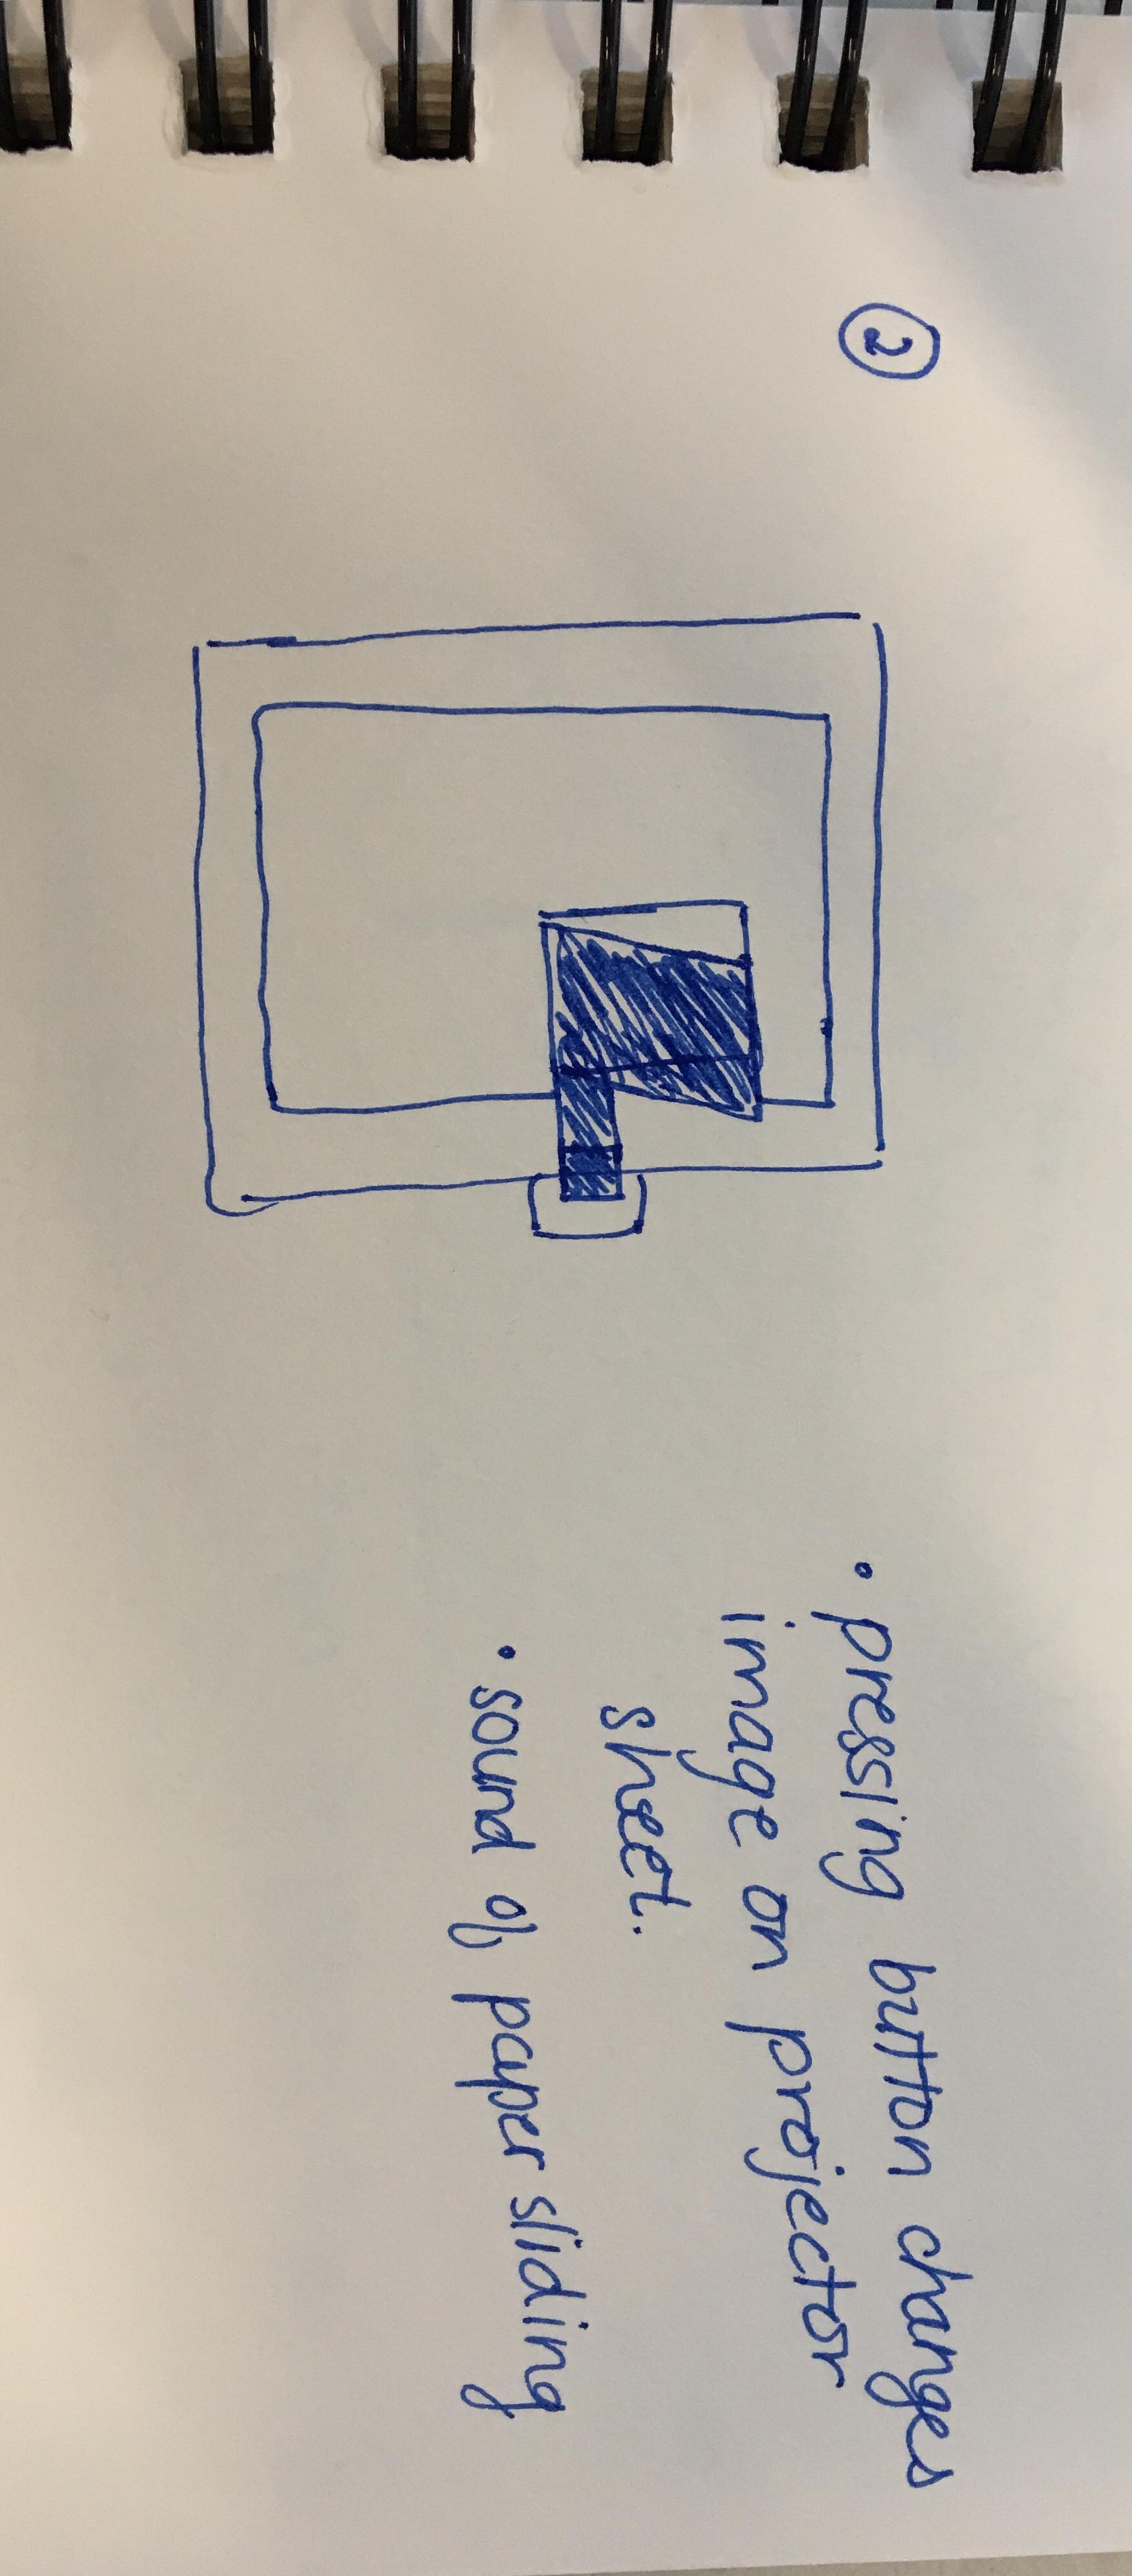 2
• pressing button changes
image on projector
sheet.
• sound of paper sliding